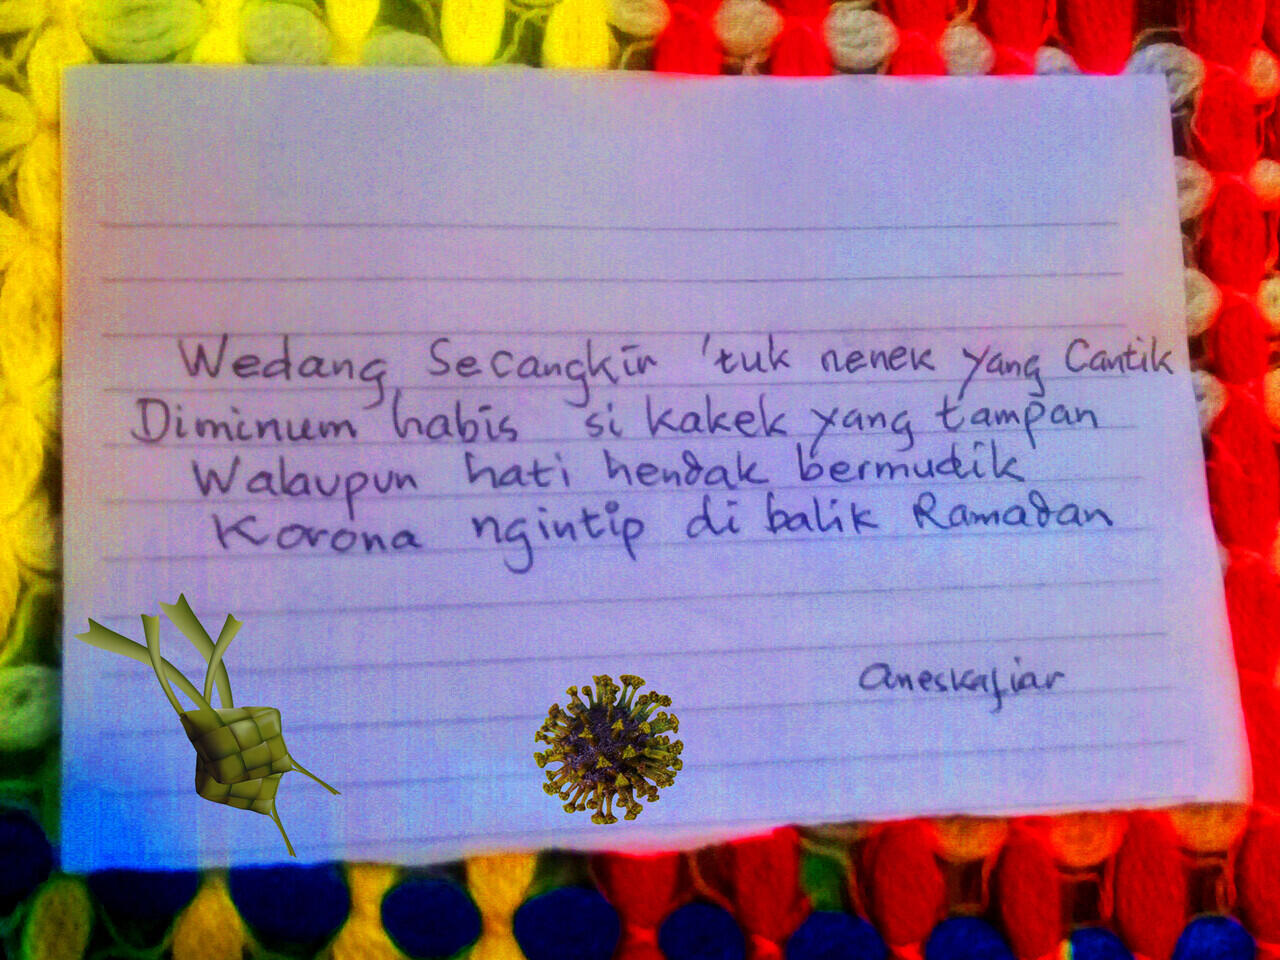 Wedang Secangkir 'tuk nenek yang Cantik
Diminum habis si kakek yang tampan
Walaupun hati hendak bermudik
Korona ngintip di balik Ramadan
aneskafiar